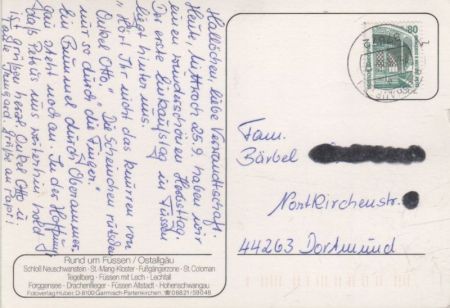 Hallöchen, liebe Verwandtschaft.
Heute, Mittwoch 25.9. haben wir
einen wunderschönen Herbsttag.
Der erste Einkaufstag in Füssen
liegt hinter uns.
"Hört Ihr nicht das knurren von
Onkel Otto" "Die Scheinchen rutschen
nur so durch die Finger."
Ein Bummel durch Oberammer-
gau steht noch an. In der Hoffnung
daß Petrus uns weiterhin hold
ist grüßen herzl. Onkel Otto u.
Tante Irmgard. Grüße an Papi!
80
Fam.
Bärbel
Nortkirchenstr.
44263 Dortmund
Rund um Füssen / Ostallgäu
Schloß Neuschwanstein - St.-Mang-Kloster - Fußgängerzone - St. Coloman
Tegelberg - Füssen mit Lech - Lechfall
Forggensee - Drachenflieger - Füssen Altstadt - Hohenschwangau
Fotoverlag Huber, D-8100 Garmisch-Partenkirchen, ☎ 08821/59048